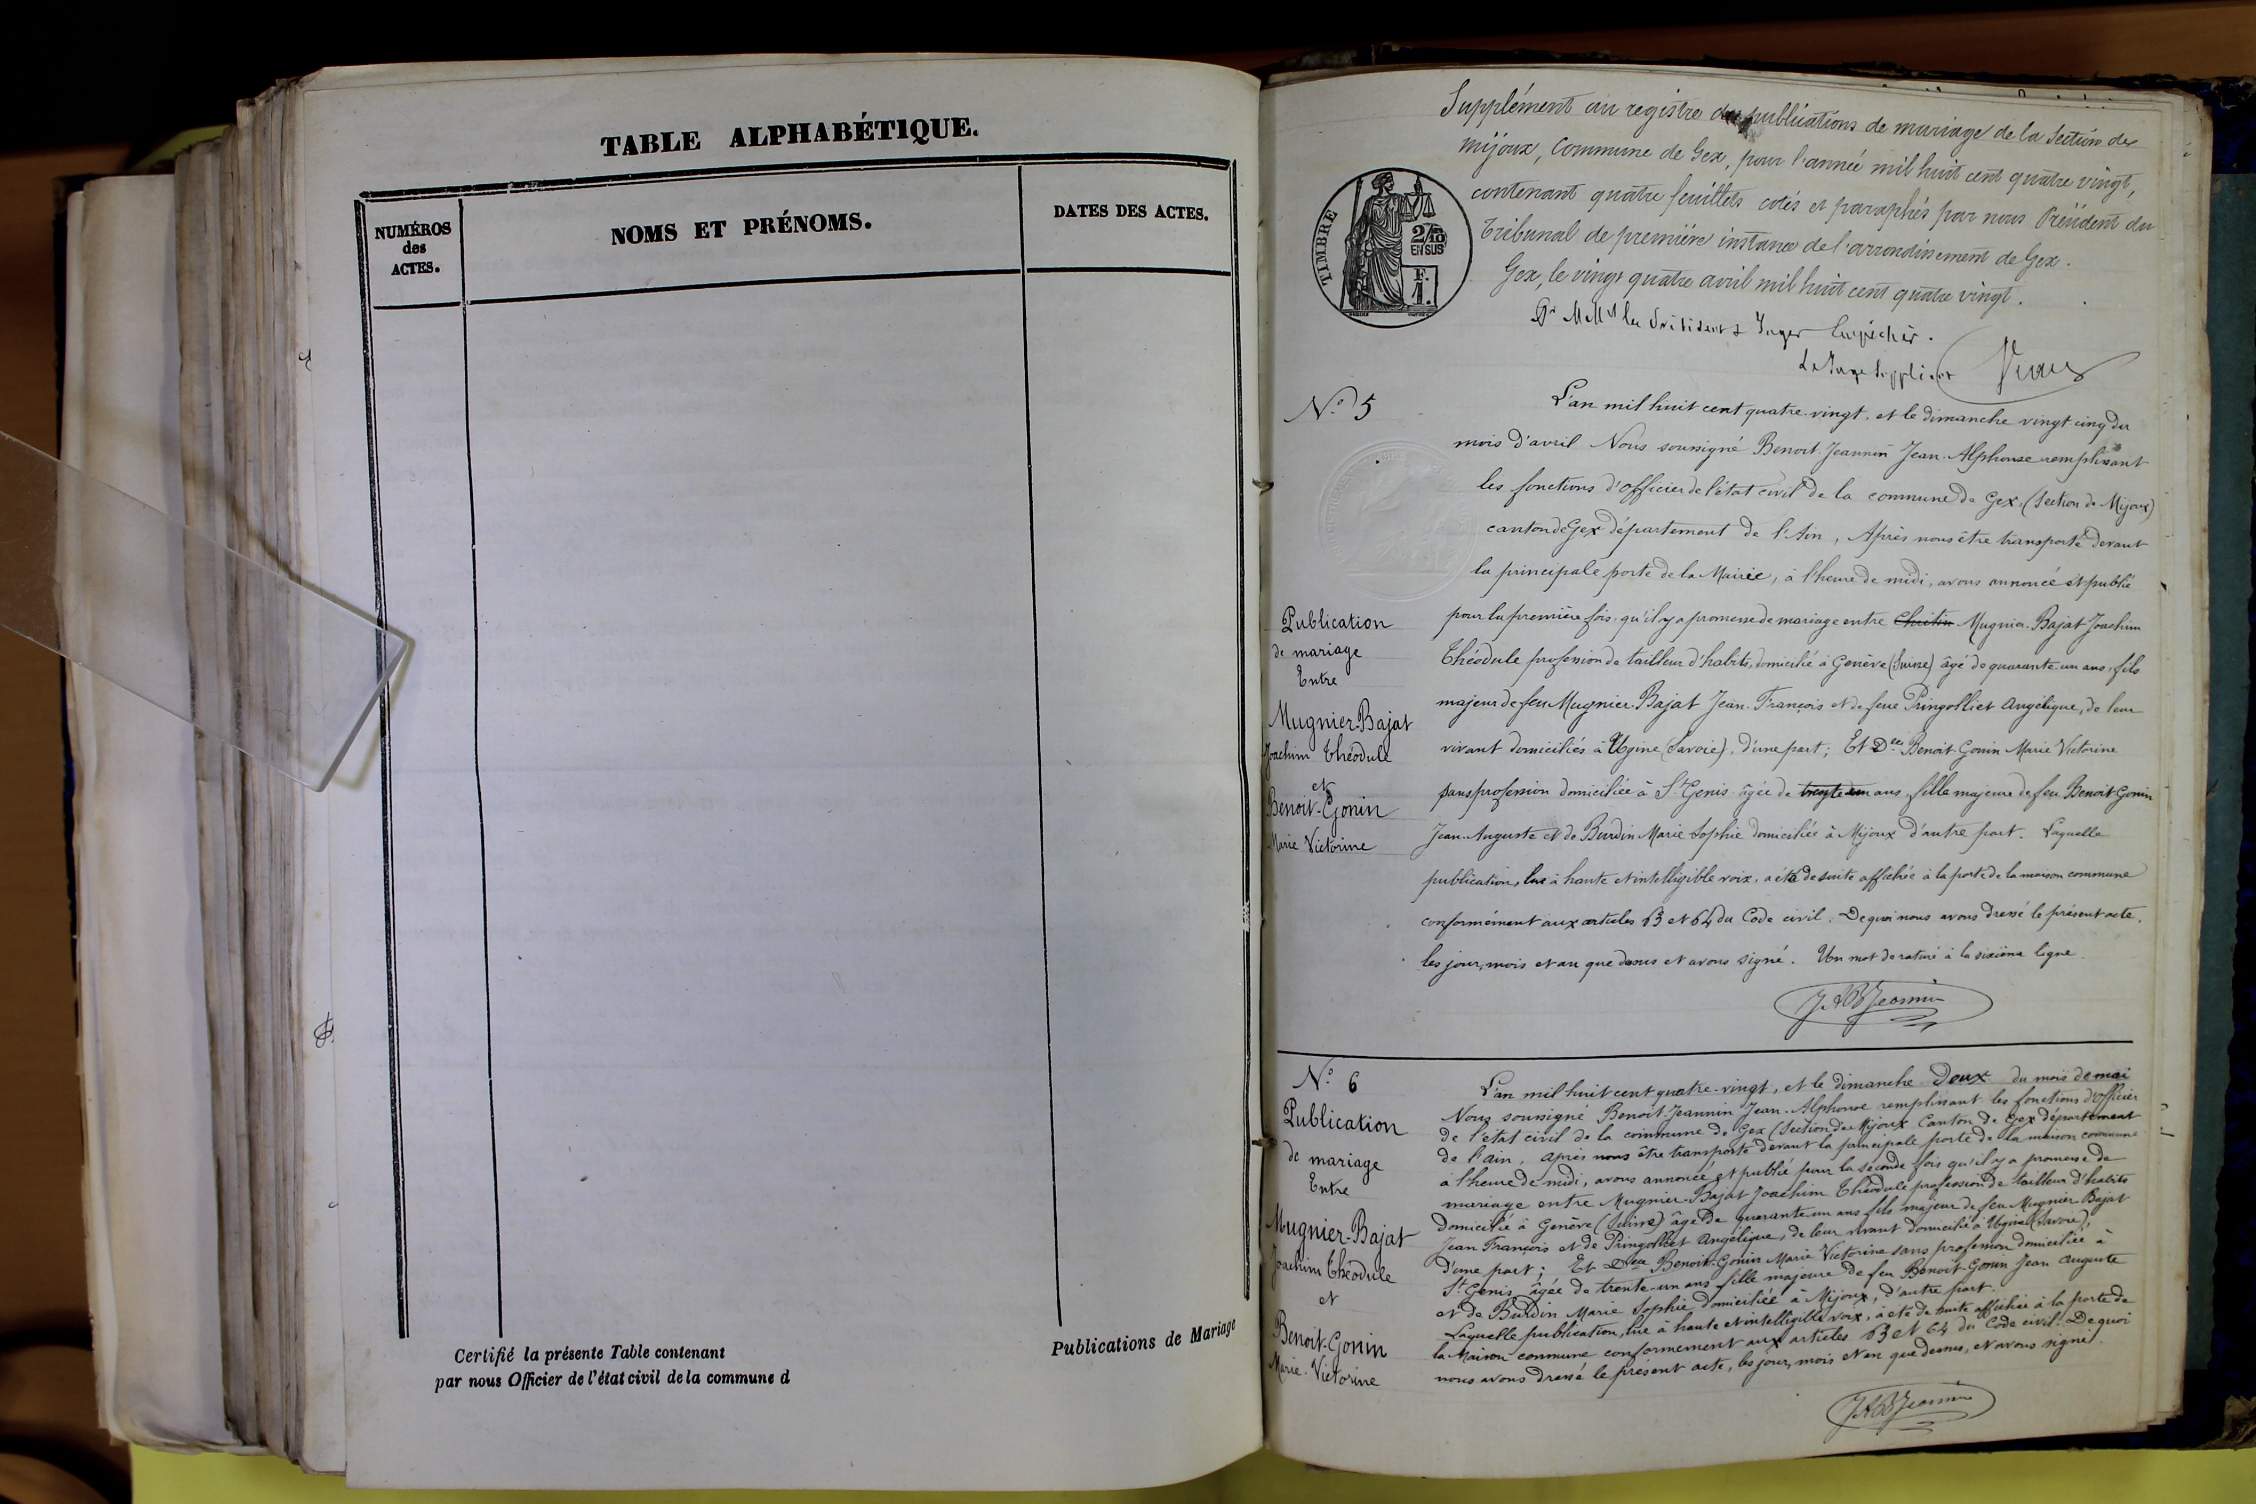 TABLE ALPHABÉTIQUE.
NUMÉROS
des
ACTES.
NOMS ET PRÉNOMS.
DATES DES ACTES.
Certifié la présente Table contenant
par nous Officier de l'état civil de la commune d
Publications de Mariage
Supplément au registre des publications de mariage de la Section de
Mijoux, Commune de Gex, pour l'année mil huit cent quatre vingt,
contenant quatre feuillets cotés et paraphés par nous Président du
Tribunal de première instance de l'arrondissement de Gex.
Gex, le vingt quatre avril mil huit cent quatre vingt.
TIMBRE
2/10
EN SUS
F.
1.
Le Juge Suppléant
N.° 5
L'an mil huit cent quatre-vingt, et le dimanche vingt cinq du
mois d'avril Nous soussigné Benoit-Jeannin Jean-Alphonse remplissant
les fonctions d'officier de l'état civil de la commune de Gex, (Section de Mijoux)
canton de Gex département de l'Ain, Après nous être transporté devant
la principale porte de la Mairie, à l'heure de midi, avons annoncé et publié
pour la première fois, qu'il y a promesse de mariage entre Mugnier-Bajat Joachim
Théodule profession de tailleur d'habits, domicilié à Genève (Suisse) âgé de quarante un ans, fils
majeur de feu Mugnier-Bajat Jean-François et de feue Pringolliet Angélique, de leur
vivant domiciliés à Ugine (Savoie), d'une part; Et Dlle Benoit-Gonin Marie Victorine
sans profession domiciliée à St Genis âgée de trente un ans, fille majeure de feu Benoit-Gonin
Jean-Auguste et de Burdin Marie Sophie domiciliée à Mijoux d'autre part. Laquelle
publication, lue à haute et intelligible voix, a été de suite affichée à la porte de la maison commune
conformément aux articles 63 et 64 du Code civil. De quoi nous avons dressé le présent acte,
les jour, mois et an que dessus et avons signé. Un mot de raturé à la sixième ligne
Publication
de mariage
Entre
Mugnier-Bajat
Joachim Théodule
et
Benoit-Gonin
Marie Victorine
J.A.B.Jeannin
N.° 6
Publication
de mariage
Entre
Mugnier-Bajat
Joachim Théodule
et
Benoit-Gonin
Marie-Victorine
L'an mil huit cent quatre-vingt, et le dimanche Deux du mois de mai
Nous soussigné Benoit-Jeannin Jean-Alphonse remplissant les fonctions d'officier
de l'état civil de la commune de Gex (Section de Mijoux Canton de Gex département
de l'ain, après nous être transporté devant la principale porte de la maison commune
à l'heure de midi, avons annoncé et publié pour la seconde fois qu'il y a promesse de
mariage entre Mugnier-Bajat Joachim Théodule profession de tailleur d'habits
domicilié à Genève (Suisse) âgé de quarante un ans fils majeur de feu Mugnier-Bajat
Jean François et de Pringolliet Angélique, de leur vivant domicilié à Ugine (Savoie),
d'une part; Et Dlle Benoit-Gonin Marie Victorine sans profession domiciliée à
St Genis âgée de trente-un ans fille majeure de feu Benoit-Gonin Jean Auguste
et de Burdin Marie Sophie domiciliée à Mijoux, d'autre part.
Laquelle publication, lue à haute et intelligible voix, a été de suite affichée à la porte de
la Maison commune conformément aux articles 63 et 64 du Code civil. De quoi
nous avons dressé le présent acte, les jour, mois et an que dessus, et avons signé.
J.A.B.Jeannin